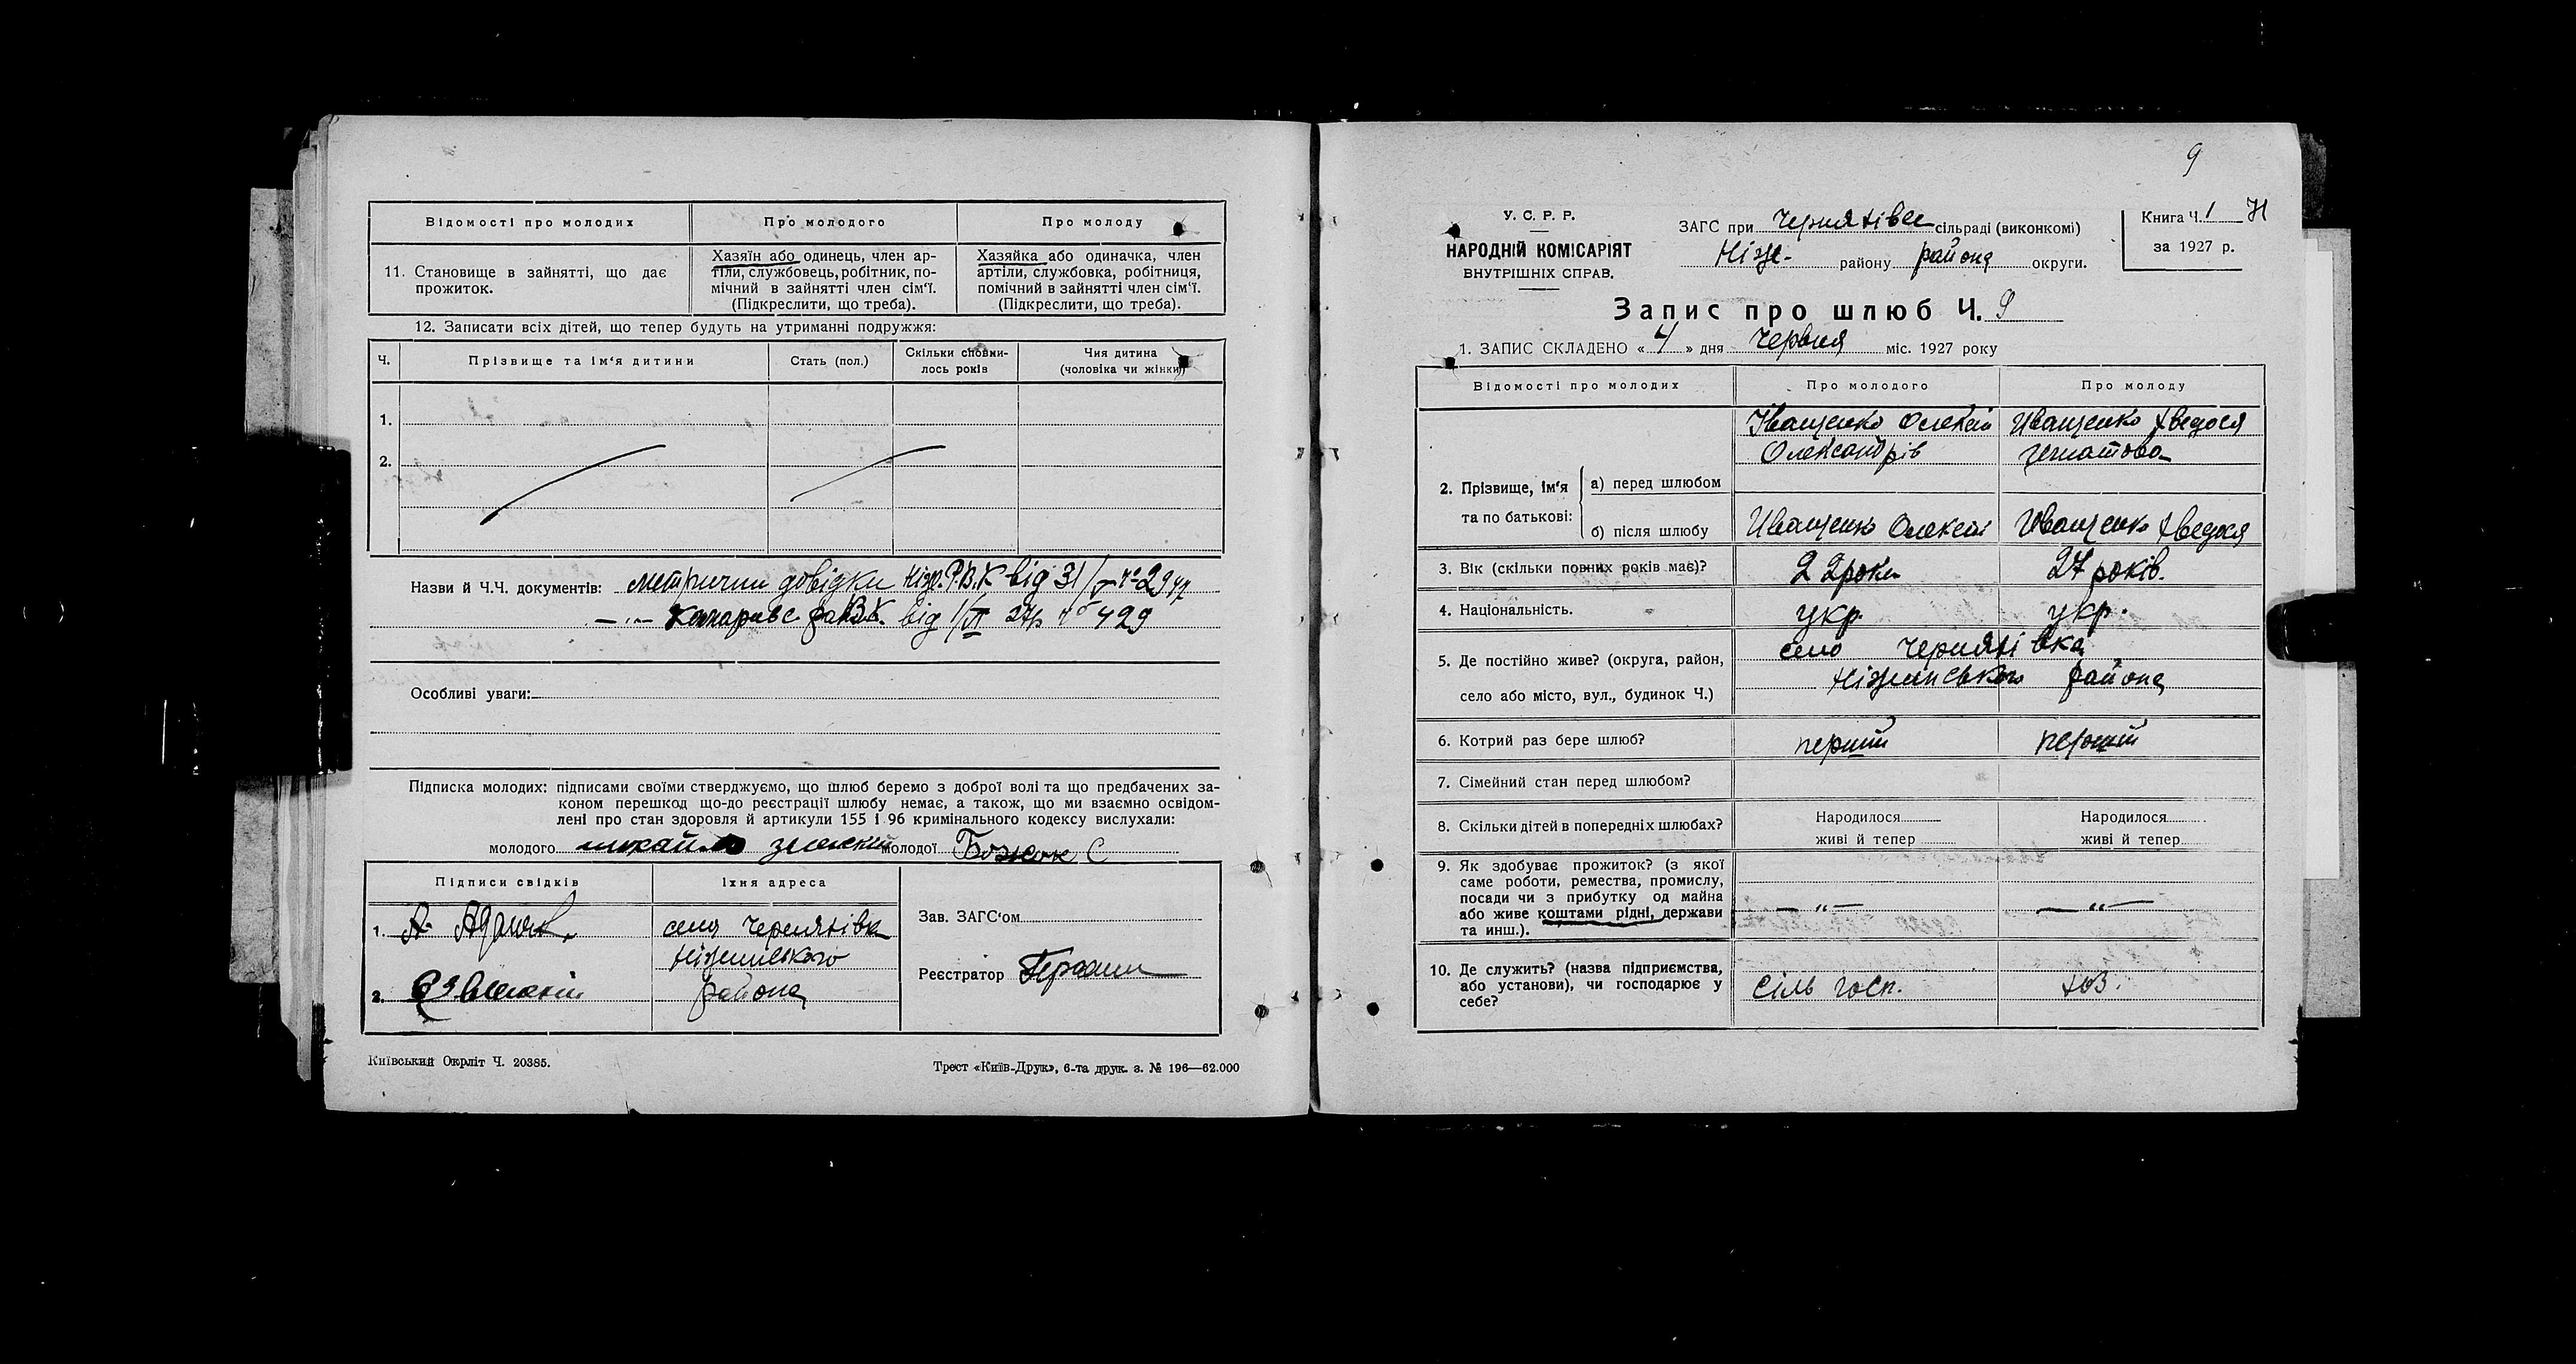 Відомості про молодих
Про молодого
Про молоду
11. Становище в зайнятті, що дає
прожиток.
Хазяїн або одинець, член ар-
тіли, службовець, робітник, по-
мічний в зайнятті член сім'ї.
(Підкреслити, що треба).
Хазяйка або одиначка, член
артіли, службовка, робітниця,
помічний в зайнятті член сім'ї.
(Підкреслити, що треба).
12. Записати всіх дітей, що тепер будуть на утриманні подружжя:
Ч.
Прізвище та ім'я дитини
Стать (пол.)
Скільки сповни-
лось років
Чия дитина
(чоловіка чи жінки)
1.
2.
Назви й Ч.Ч. документів: метрични довідки Ніж. Р.В.К від 31/V
від 1/VI 27р № 429
Особливі уваги:
Підписка молодих: підписами своїми стверджуємо, що шлюб беремо з доброї волі та що предбачених за-
коном перешкод що-до реєстрації шлюбу немає, а також, що ми взаємно освідом-
лені про стан здоровля й артикули 155 і 96 кримінального кодексу вислухали:
молодого михайло молодої Божок С
Підписи свідків
Їхня адреса
1. А.
село Чернятівка
Ніжинського
2.
района
Зав. ЗАГС'ом
Реєстратор
Київський Окрліт Ч. 20385.
Трест «Київ-Друк», 6-та друк. з. № 196—62.000
9
У. С. Р. Р.
НАРОДНІЙ КОМІСАРІЯТ
ВНУТРІШНІХ СПРАВ.
ЗАГС при сільраді (виконкомі)
Ніж- району района округи.
Книга Ч. 1
за 1927 р.
Запис про шлюб Ч. 9
1. ЗАПИС СКЛАДЕНО « 4 » дня Червня міс. 1927 року
Відомості про молодих
Про молодого
Про молоду
2. Прізвище, ім'я
та по батькові:
а) перед шлюбом
Іващенко Олексій
Олександрів
Иващенко Хведося
Игнатова
б) після шлюбу
Иващенко Олексій
Иващенко Хведося
3. Вік (скільки повних років має)?
22 роки
27 років.
4. Національність.
укр.
укр.
5. Де постійно живе? (округа, район,
село або місто, вул., будинок Ч.)
село Чернятівка
Ніжинського района
6. Котрий раз бере шлюб?
перший
перший
7. Сімейний стан перед шлюбом?
8. Скільки дітей в попередніх шлюбах?
Народилося
живі й тепер
Народилося
живі й тепер
9. Як здобуває прожиток? (з якої
саме роботи, ремества, промислу,
посади чи з прибутку од майна
або живе коштами рідні, держави
та инш.).
— „ —
— „ —
10. Де служить? (назва підприємства,
або установи), чи господарює у
себе?
Сіль госп.